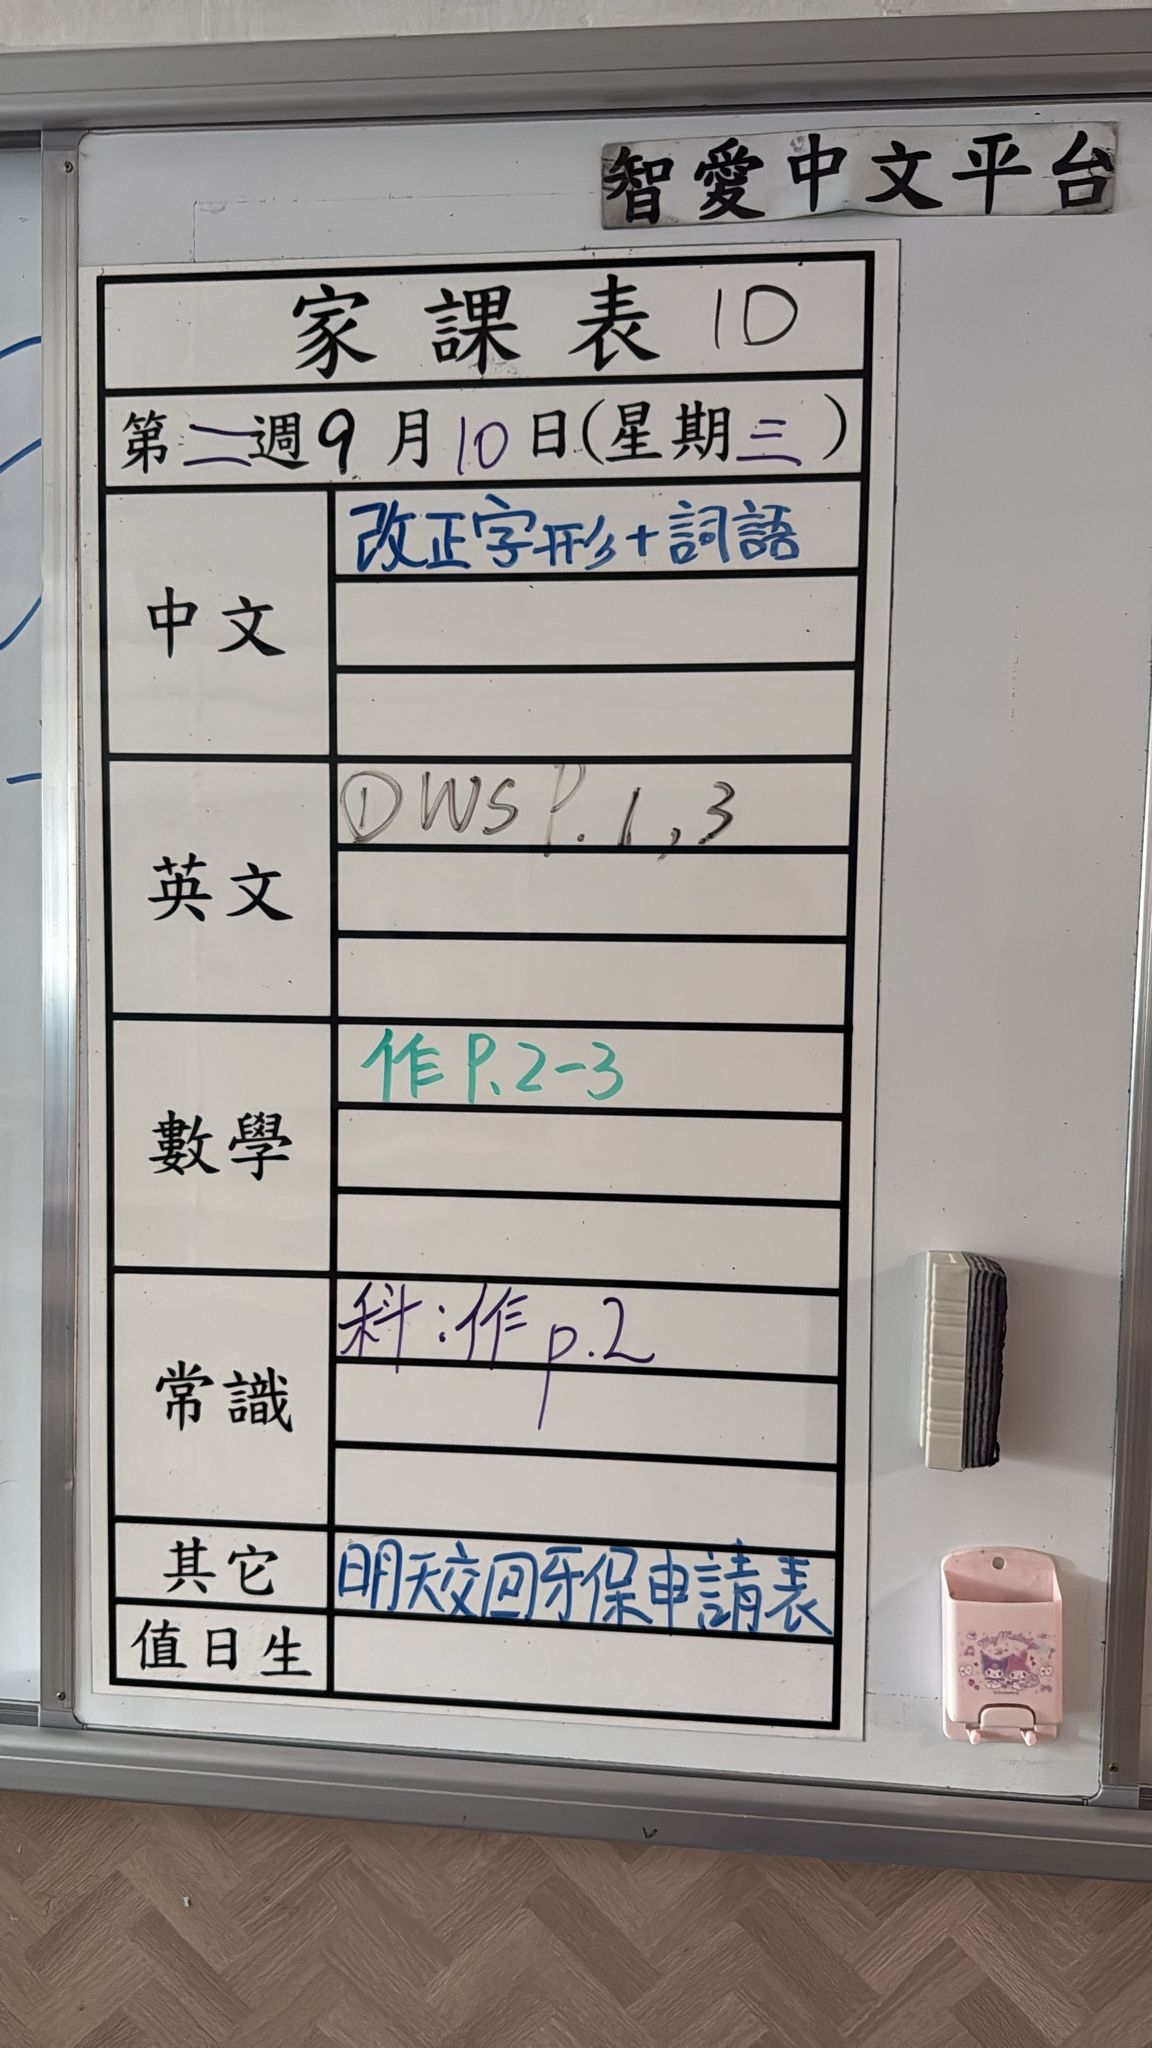 智愛中文平台
家課表 1D
第二週9月10日(星期三)
中文
改正字形+詞語
英文
①WS P.1,3
數學
作P.2-3
常識
科:作p.2
其它
明天交回牙保申請表
值日生